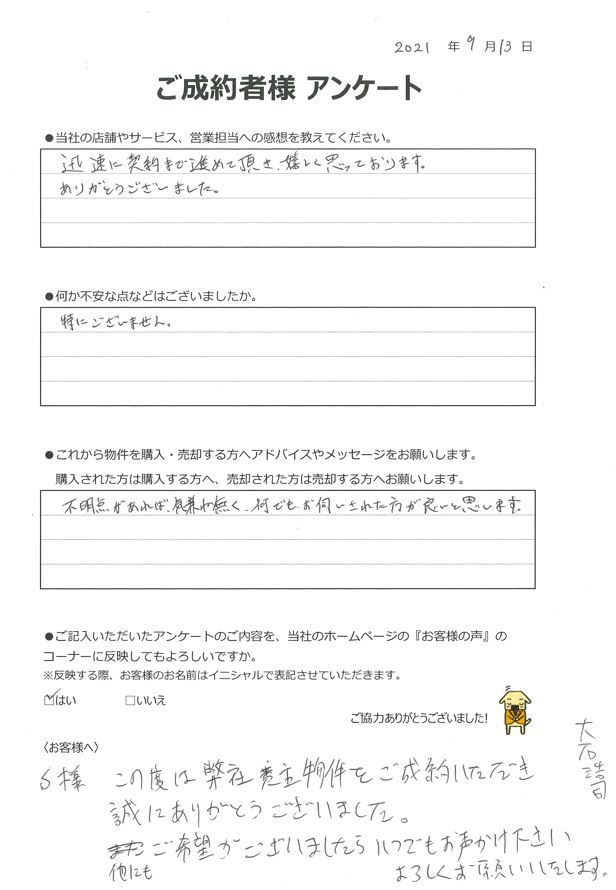 2021 年 9 月 13 日
ご成約者様 アンケート
●当社の店舗やサービス、営業担当への感想を教えてください。
迅速に契約まで進めて頂き、嬉しく思っております。
ありがとうございました。
●何か不安な点などはございましたか。
特にございません。
●これから物件を購入・売却する方へアドバイスやメッセージをお願いします。
購入された方は購入する方へ、売却された方は売却する方へお願いします。
不明点があれば、気兼ね無く、何でもお伺いされた方が良いと思います。
●ご記入いただいたアンケートのご内容を、当社のホームページの『お客様の声』の
コーナーに反映してもよろしいですか。
※反映する際、お客様のお名前はイニシャルで表記させていただきます。
☑はい □いいえ
ご協力ありがとうございました!
〈お客様へ〉
S様 この度は弊社売主物件をご成約いただき
誠にありがとうございました。
また ご希望がございましたらいつでもお声かけ下さい
他にも よろしくお願いいたします。
大石浩司